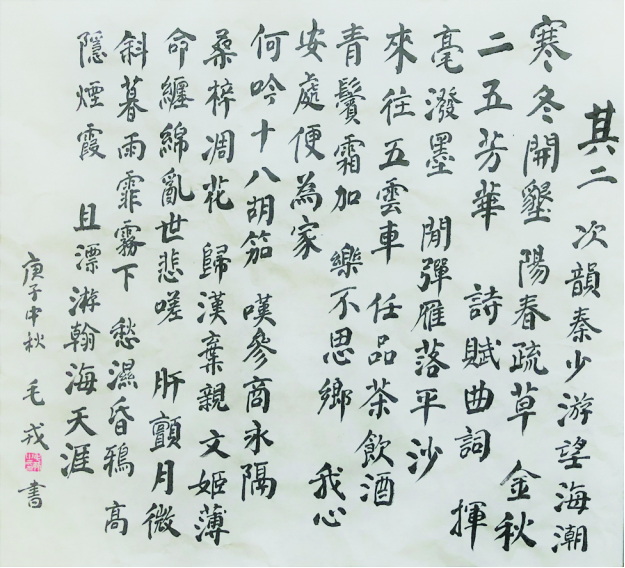 其二 次韻秦少游望海潮
寒冬開墾 陽春疏草 金秋
二五芳華 詩賦曲詞 揮
毫潑墨 閒彈雁落平沙
來往五雲車 任品茶飲酒
青鬢霜加 樂不思鄉 我心
安處便為家
何吟十八胡笳 嘆參商永隔
桑梓凋花 歸漢棄親 文姬薄
命纏綿亂世悲嗟 肝顫月微
斜暮雨霏霧下 愁濕昏鴉 高
隱煙霞 且漂游翰海天涯
庚子中秋 毛戎 書